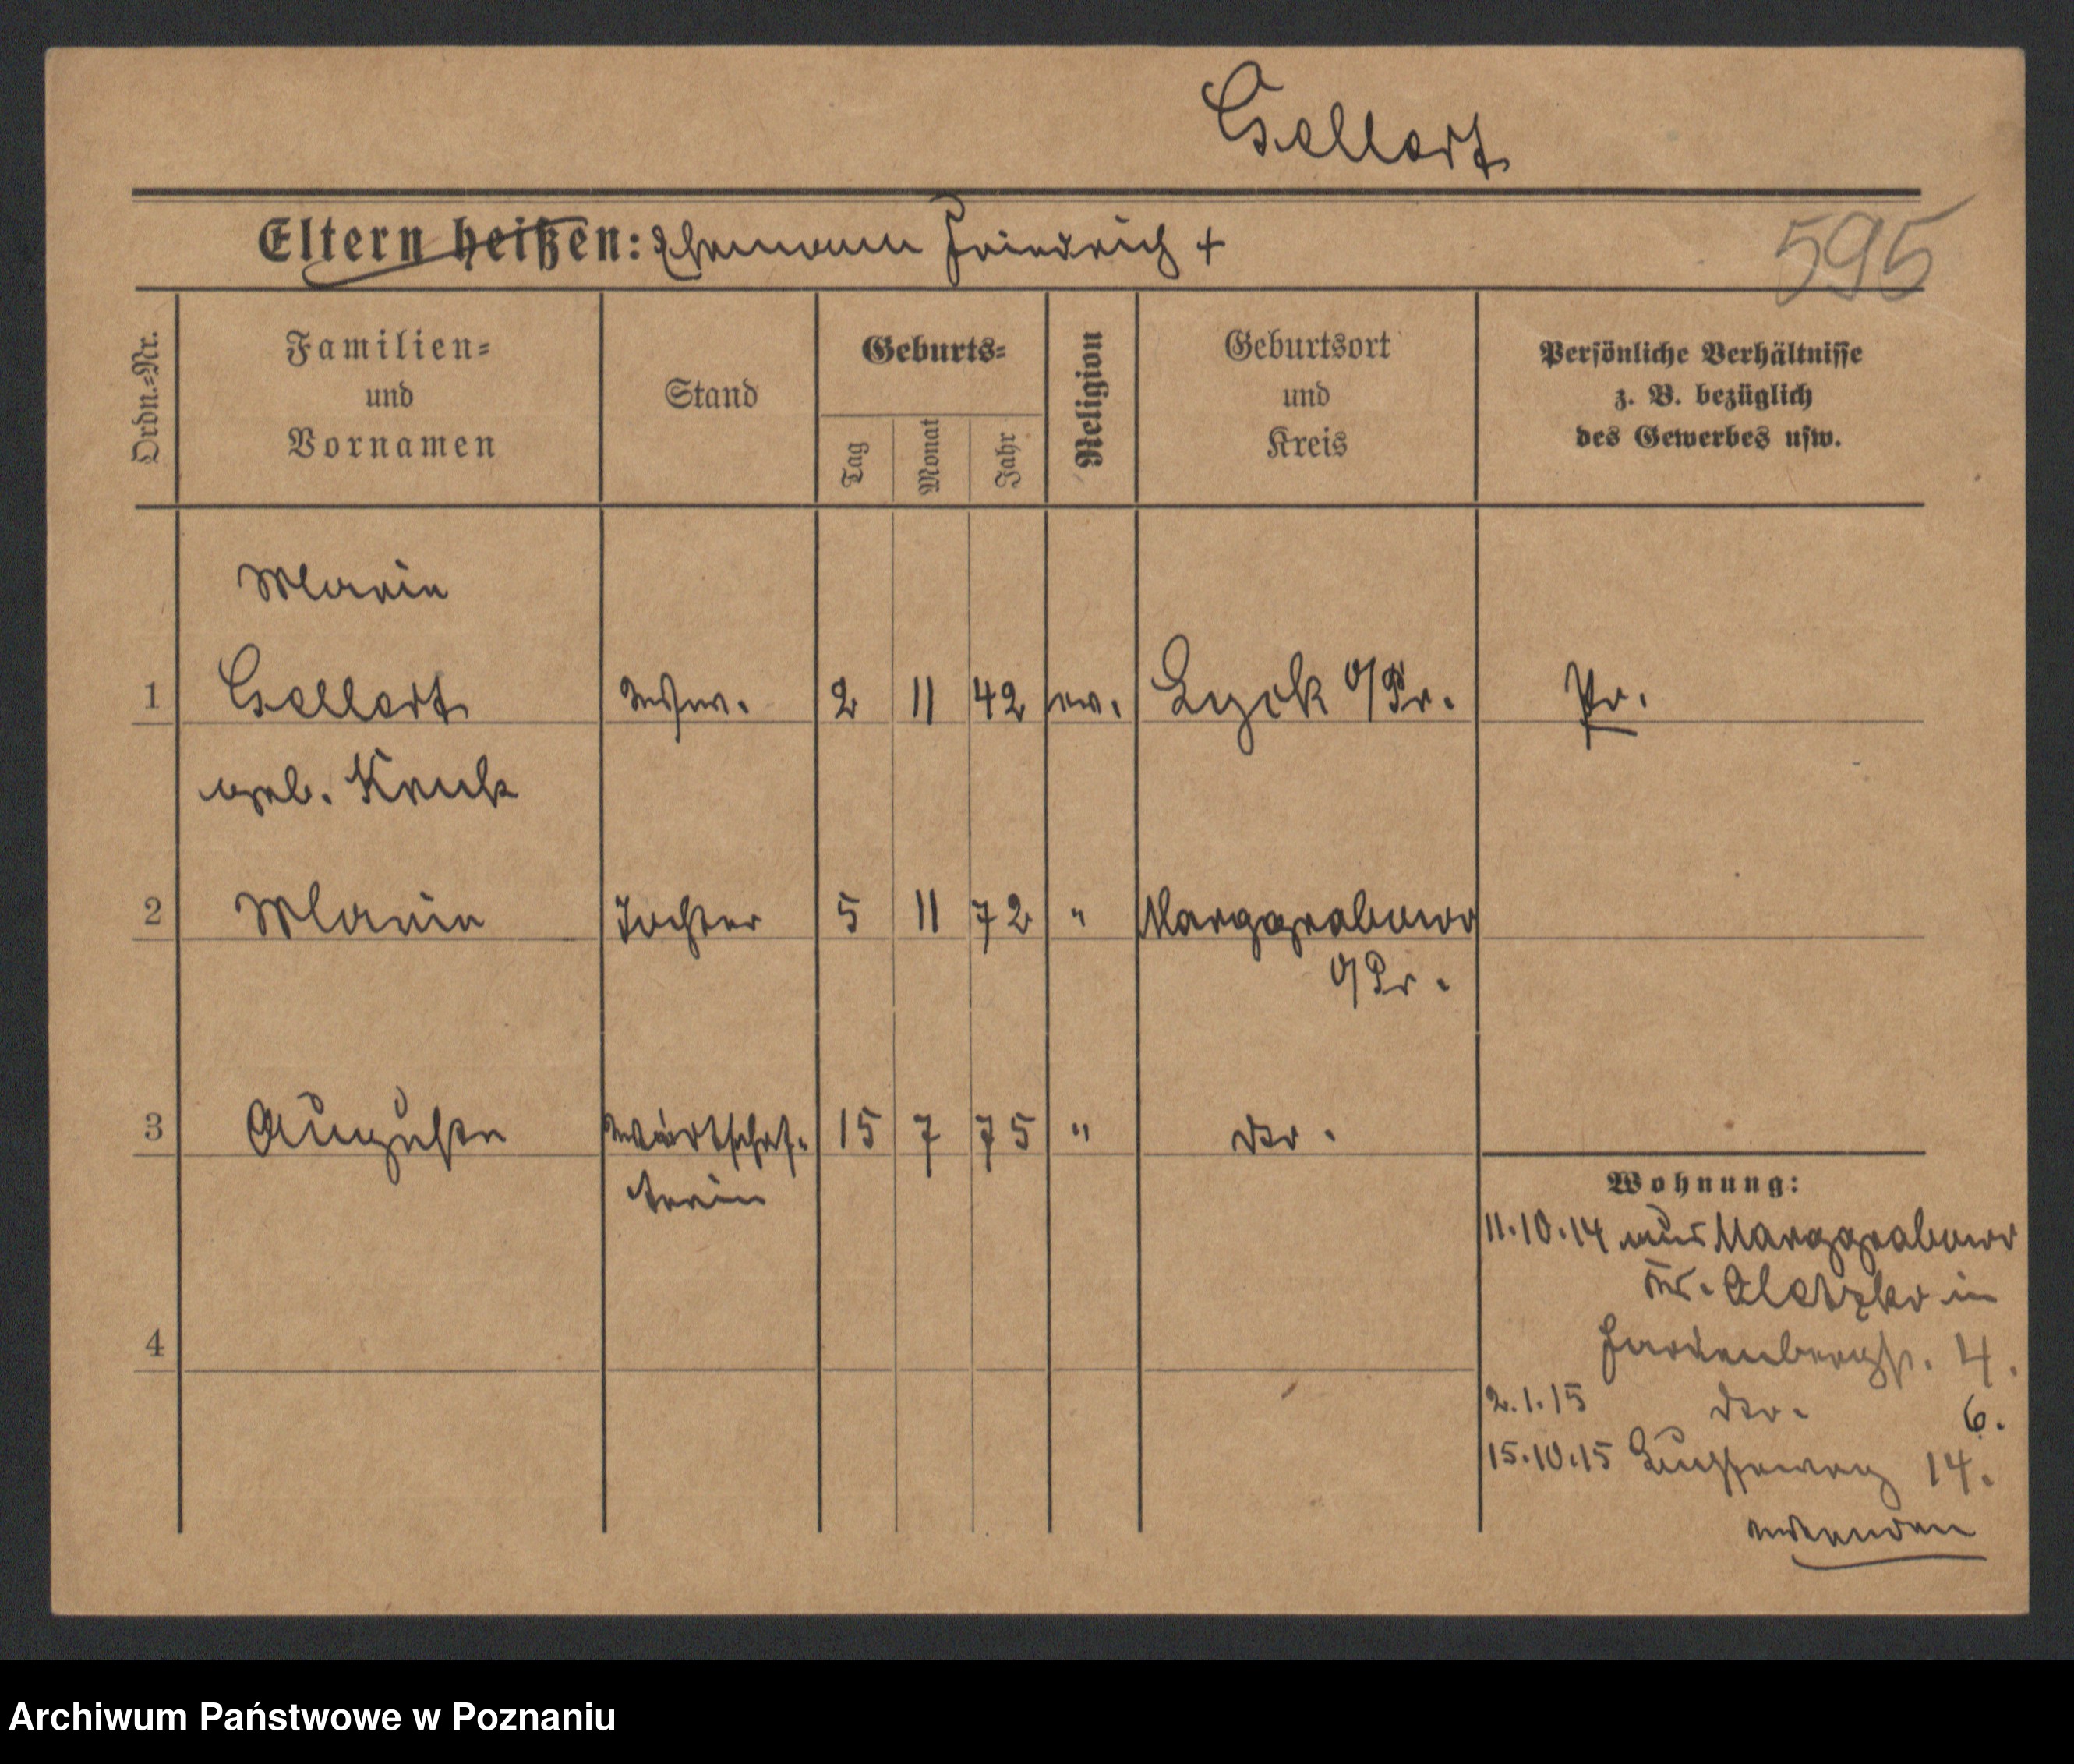 Gellert
Eltern heißen: Ehemann Friedrich +
595
Ordn.-Nr.
Familien-
und
Vornamen
Stand
Geburts-
Tag
Monat
Jahr
Religion
Geburtsort
und
Kreis
Persönliche Verhältnisse
z. B. bezüglich
des Gewerbes usw.
Marie
1 Gellert Wwe. 2 11 42 ev. Lyck O/Pr. Pr.
geb. Kruk
2 Marie Tochter 5 11 72 " Marggrabowo
O/Pr.
3 Auguste Wirtschaf- 15 7 75 " dto.
terin
4
Wohnung:
11.10.14 aus Marggrabowo
Kr. Oletzko in
Hardenbergstr. 4.
2.1.15 dto. 6.
15.10.15 14.
wenden
Archiwum Państwowe w Poznaniu